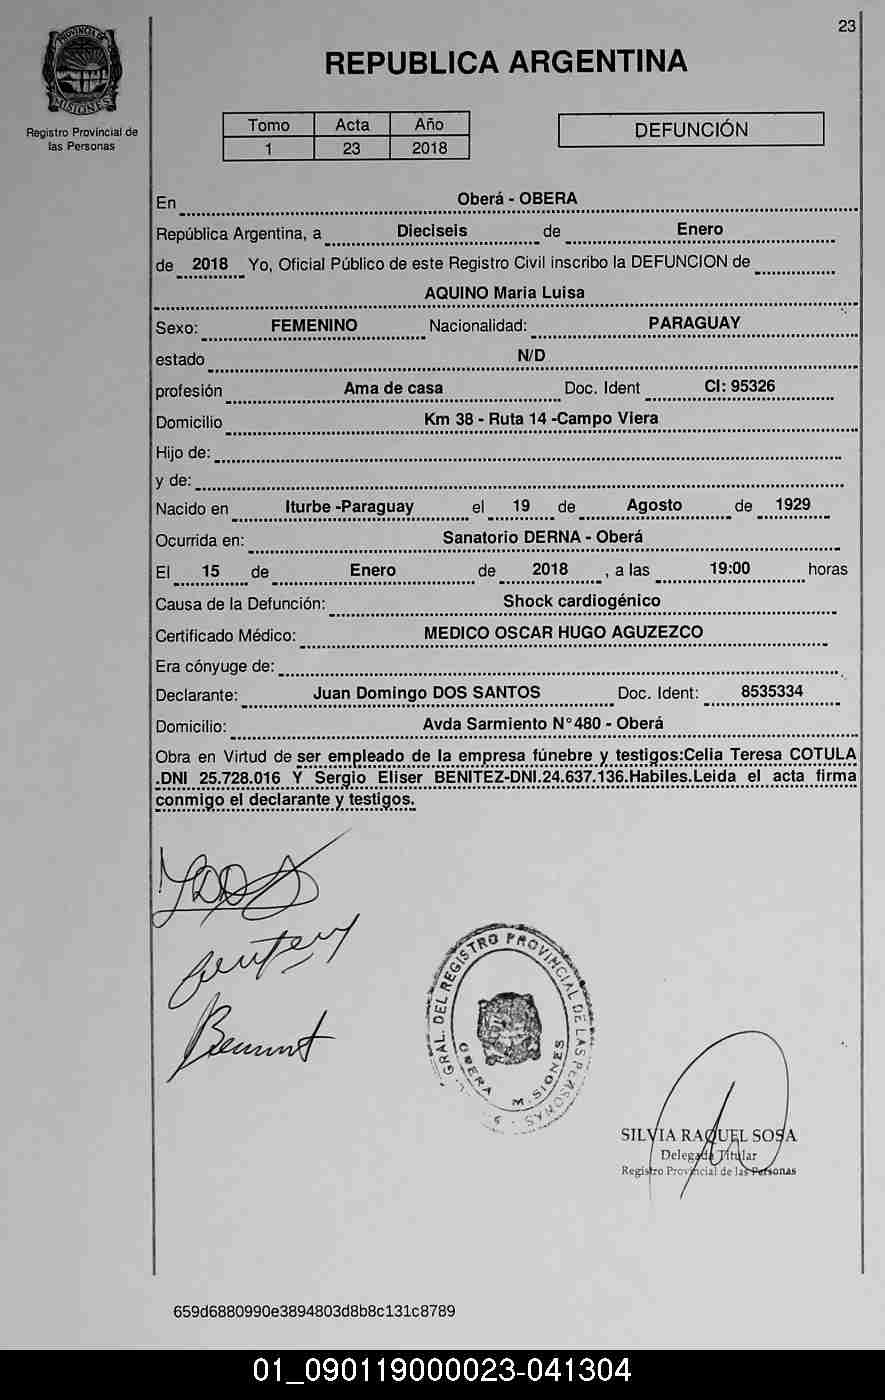 23
PROVINCIA DE
MISIONES
Registro Provincial de
las Personas
REPUBLICA ARGENTINA
Tomo Acta Año
1 23 2018
DEFUNCIÓN
En Oberá - OBERA
República Argentina, a Dieciseis de Enero
de 2018 Yo, Oficial Público de este Registro Civil inscribo la DEFUNCION de
AQUINO Maria Luisa
Sexo: FEMENINO Nacionalidad: PARAGUAY
estado N/D
profesión Ama de casa Doc. Ident CI: 95326
Domicilio Km 38 - Ruta 14 -Campo Viera
Hijo de:
y de:
Nacido en Iturbe -Paraguay el 19 de Agosto de 1929
Ocurrida en: Sanatorio DERNA - Oberá
El 15 de Enero de 2018 , a las 19:00 horas
Causa de la Defunción: Shock cardiogénico
Certificado Médico: MEDICO OSCAR HUGO AGUZEZCO
Era cónyuge de:
Declarante: Juan Domingo DOS SANTOS Doc. Ident: 8535334
Domicilio: Avda Sarmiento N°480 - Oberá
Obra en Virtud de ser empleado de la empresa fúnebre y testigos:Celia Teresa COTULA
.DNI 25.728.016 Y Sergio Eliser BENITEZ-DNI.24.637.136.Habiles.Leida el acta firma
conmigo el declarante y testigos.
GRAL. DEL REGISTRO PROVINCIAL DE LAS PERSONAS
OBERA MISIONES
SILVIA RAQUEL SOSA
Delegada Titular
Registro Provincial de las Personas
659d6880990e3894803d8b8c131c8789
01_090119000023-041304